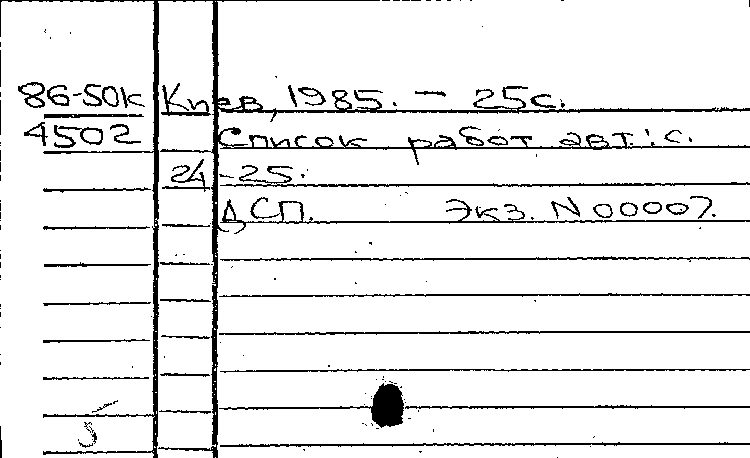 86-50к Киев, 1985. - 25с.
4502 Список работ авт.: с.
24-25.
ДСП. Экз. N 00007.
5